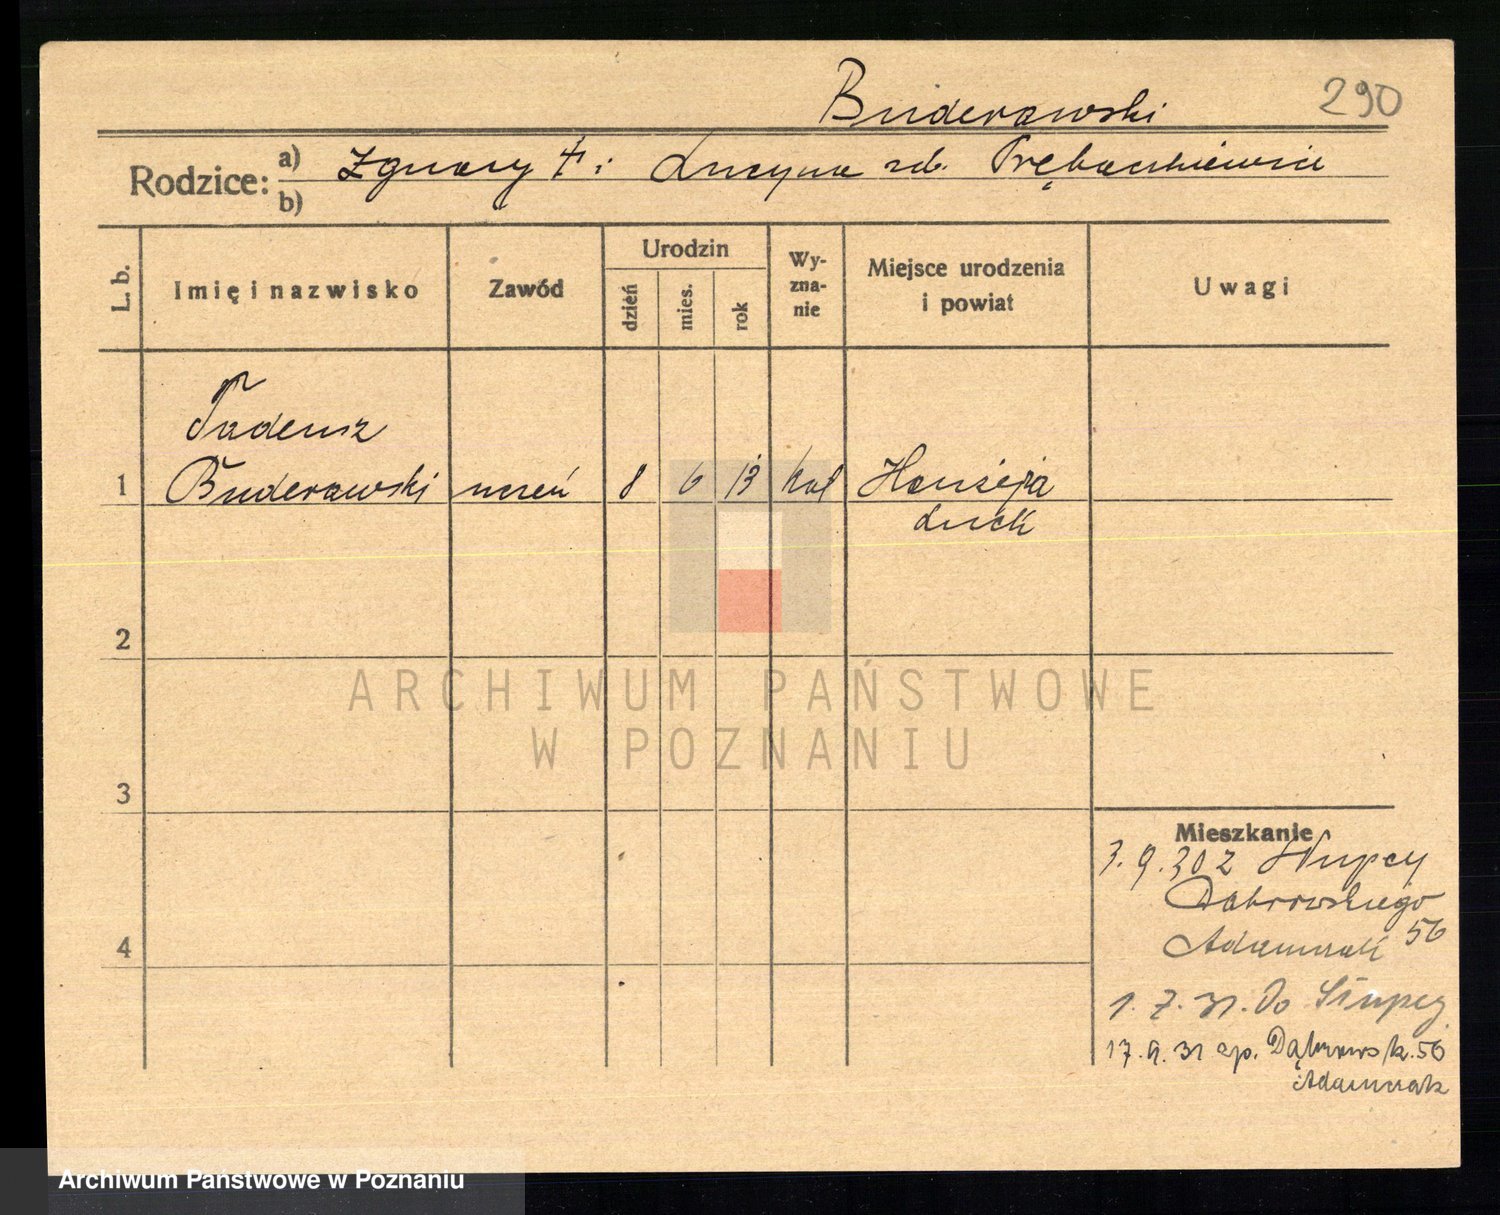 Buderawski
290
Rodzice:
a) Ignacy † i Lucyna zd. Trębaczkiewicz
b)
L. b.
Imię i nazwisko
Zawód
Urodzin
dzień
mies.
rok
Wy-
zna-
nie
Miejsce urodzenia
i powiat
Uwagi
Tadeusz
1 Buderawski uczeń 8 6 13 kat
Łuck
2
ARCHIWUM PAŃSTWOWE
W POZNANIU
3
Mieszkanie
3.9.30 z Słupcy
Dąbrowskiego
Adamczak 56
4
1.7.31. Do Słupcy
17.9.31 sp. Dąbrowsk. 56
Adamczak
Archiwum Państwowe w Poznaniu